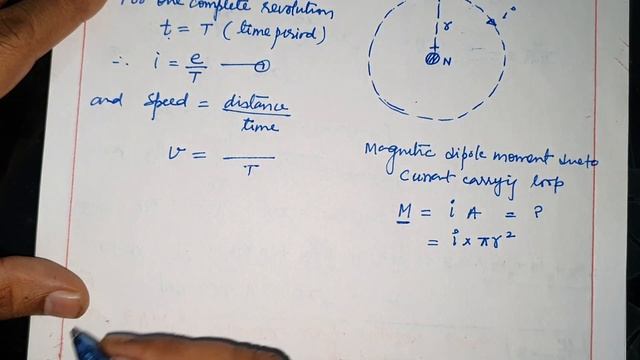 For one complete revolution
t = T (time period)
∴ i = e/T — ①
and speed = distance/time
v = /T
i
r
+
N
Magnetic dipole moment due to
Current carrying loop
M = i A = ?
= i × πr²